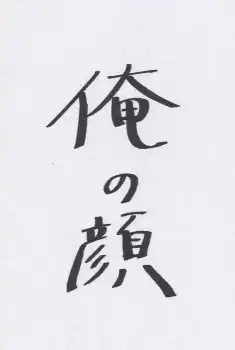 俺の顔